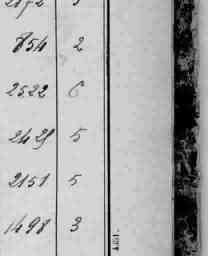 854 2
2522 6
2425 5
2151 5
1498 3